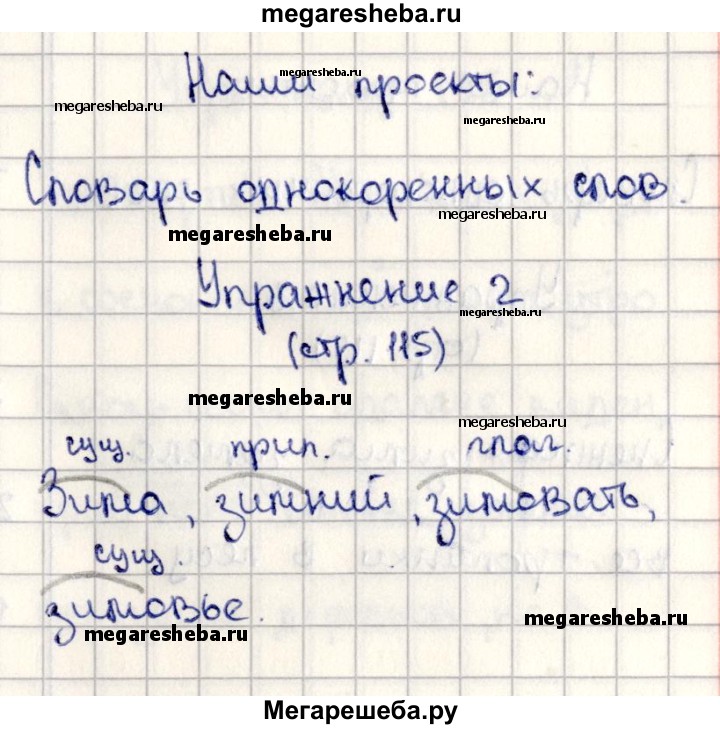 megaresheba.ru
Наши проекты:
megaresheba.ru
megaresheba.ru
megaresheba.ru
Словарь однокоренных слов.
megaresheba.ru
megaresheba.ru
Упражнение 2
megaresheba.ru
(стр. 115)
megaresheba.ru
megaresheba.ru
сущ. прил. глаг.
Зима, зимний, зимовать,
сущ.
зимовье.
megaresheba.ru
megaresheba.ru
Мегарешеба.ру